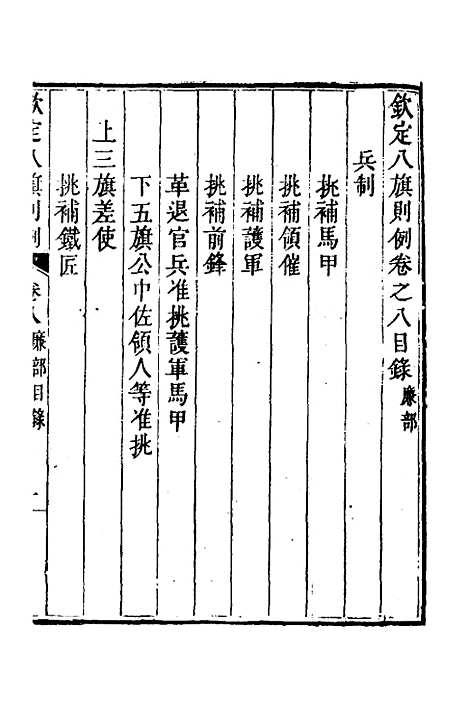 欽定八旗則例卷之八目錄 廉部
兵制
挑補馬甲
挑補領催
挑補護軍
挑補前鋒
革退官兵准挑護軍馬甲
下五旗公中佐領人等准挑
上三旗差使
挑補鐵匠
欽定八旗則例 卷八廉部目錄 一